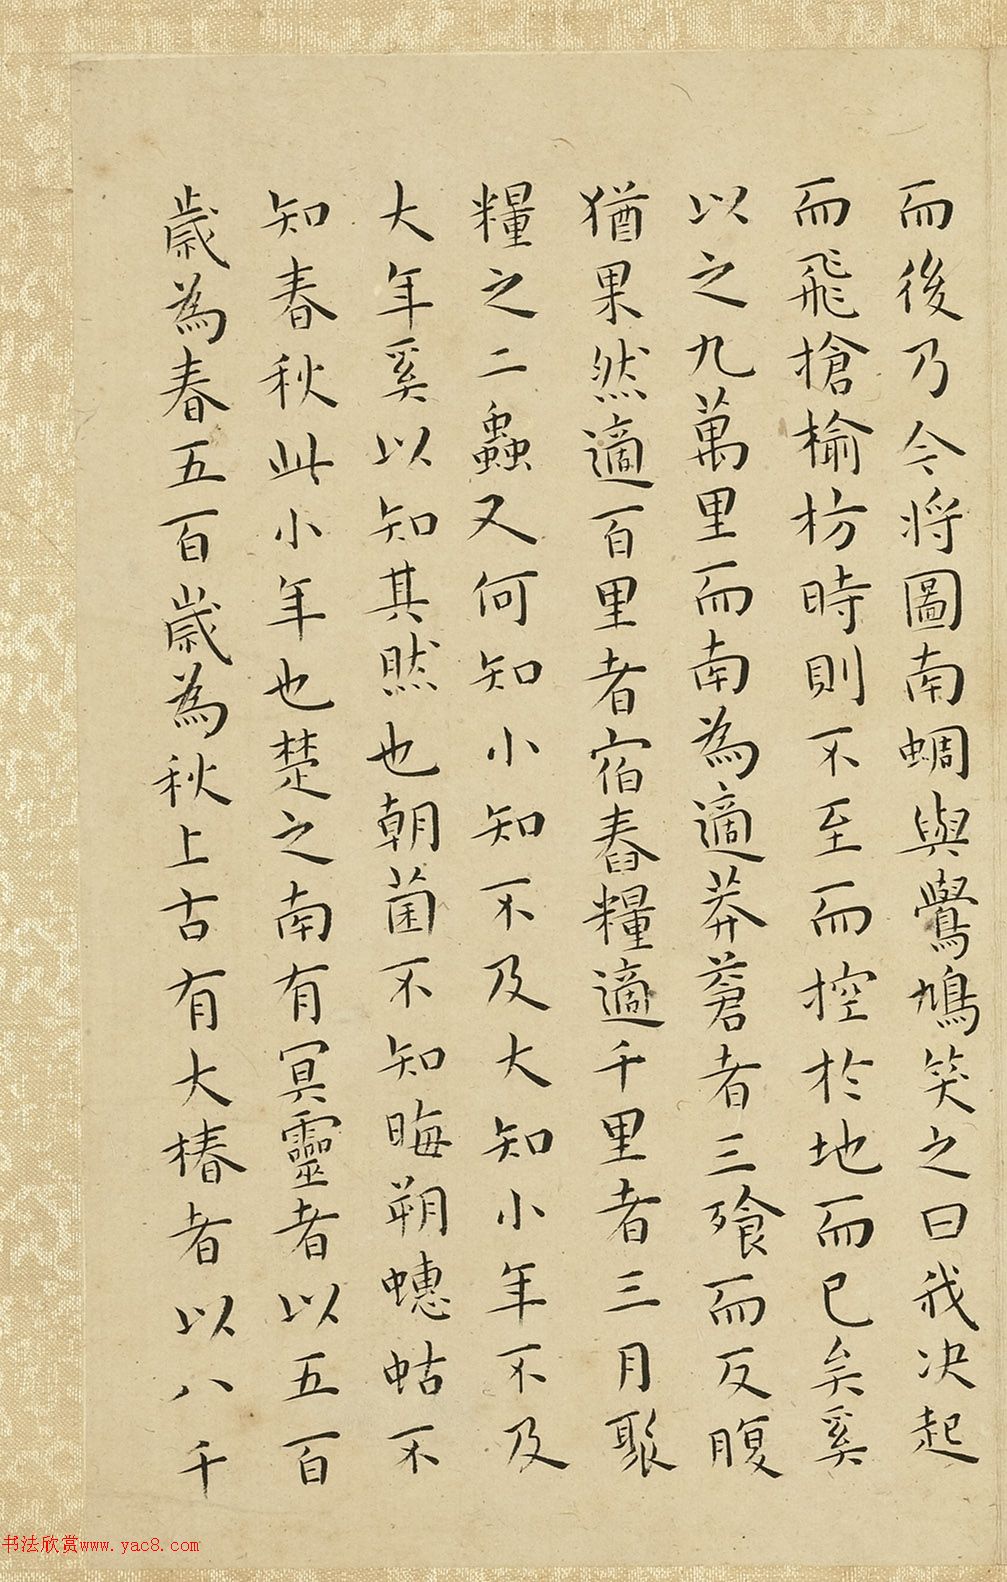 而後乃今將圖南蜩與鷽鳩笑之曰我決起
而飛搶榆枋時則不至而控於地而已矣奚
以之九萬里而南為適莽蒼者三飱而反腹
猶果然適百里者宿舂糧適千里者三月聚
糧之二蟲又何知小知不及大知小年不及
大年奚以知其然也朝菌不知晦朔蟪蛄不
知春秋此小年也楚之南有冥靈者以五百
歲為春五百歲為秋上古有大椿者以八千
书法欣赏www.yac8.com